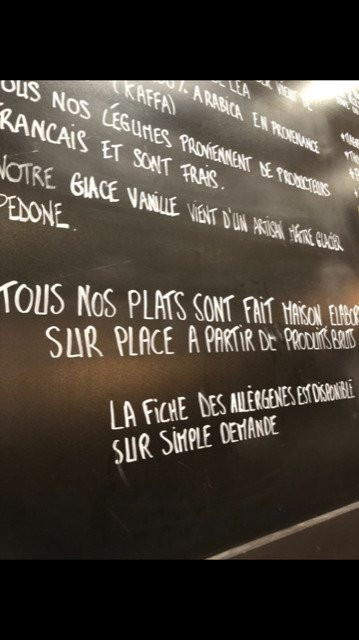 100% ARABICA EN PROVENANCE
(KAFFA)
TOUS NOS LÉGUMES PROVIENNENT DE PRODUCTEURS
FRANCAIS ET SONT FRAIS.
NOTRE GLACE VANILLE VIENT D'UN ARTISAN MAÎTRE GLACIER
PEDONE.
TOUS NOS PLATS SONT FAIT MAISON ELABOR
SUR PLACE A PARTIR DE PRODUITS BRUTS
LA FICHE DES ALLÈRGENES EST DISPONIBLE
SUR SIMPLE DEMANDE